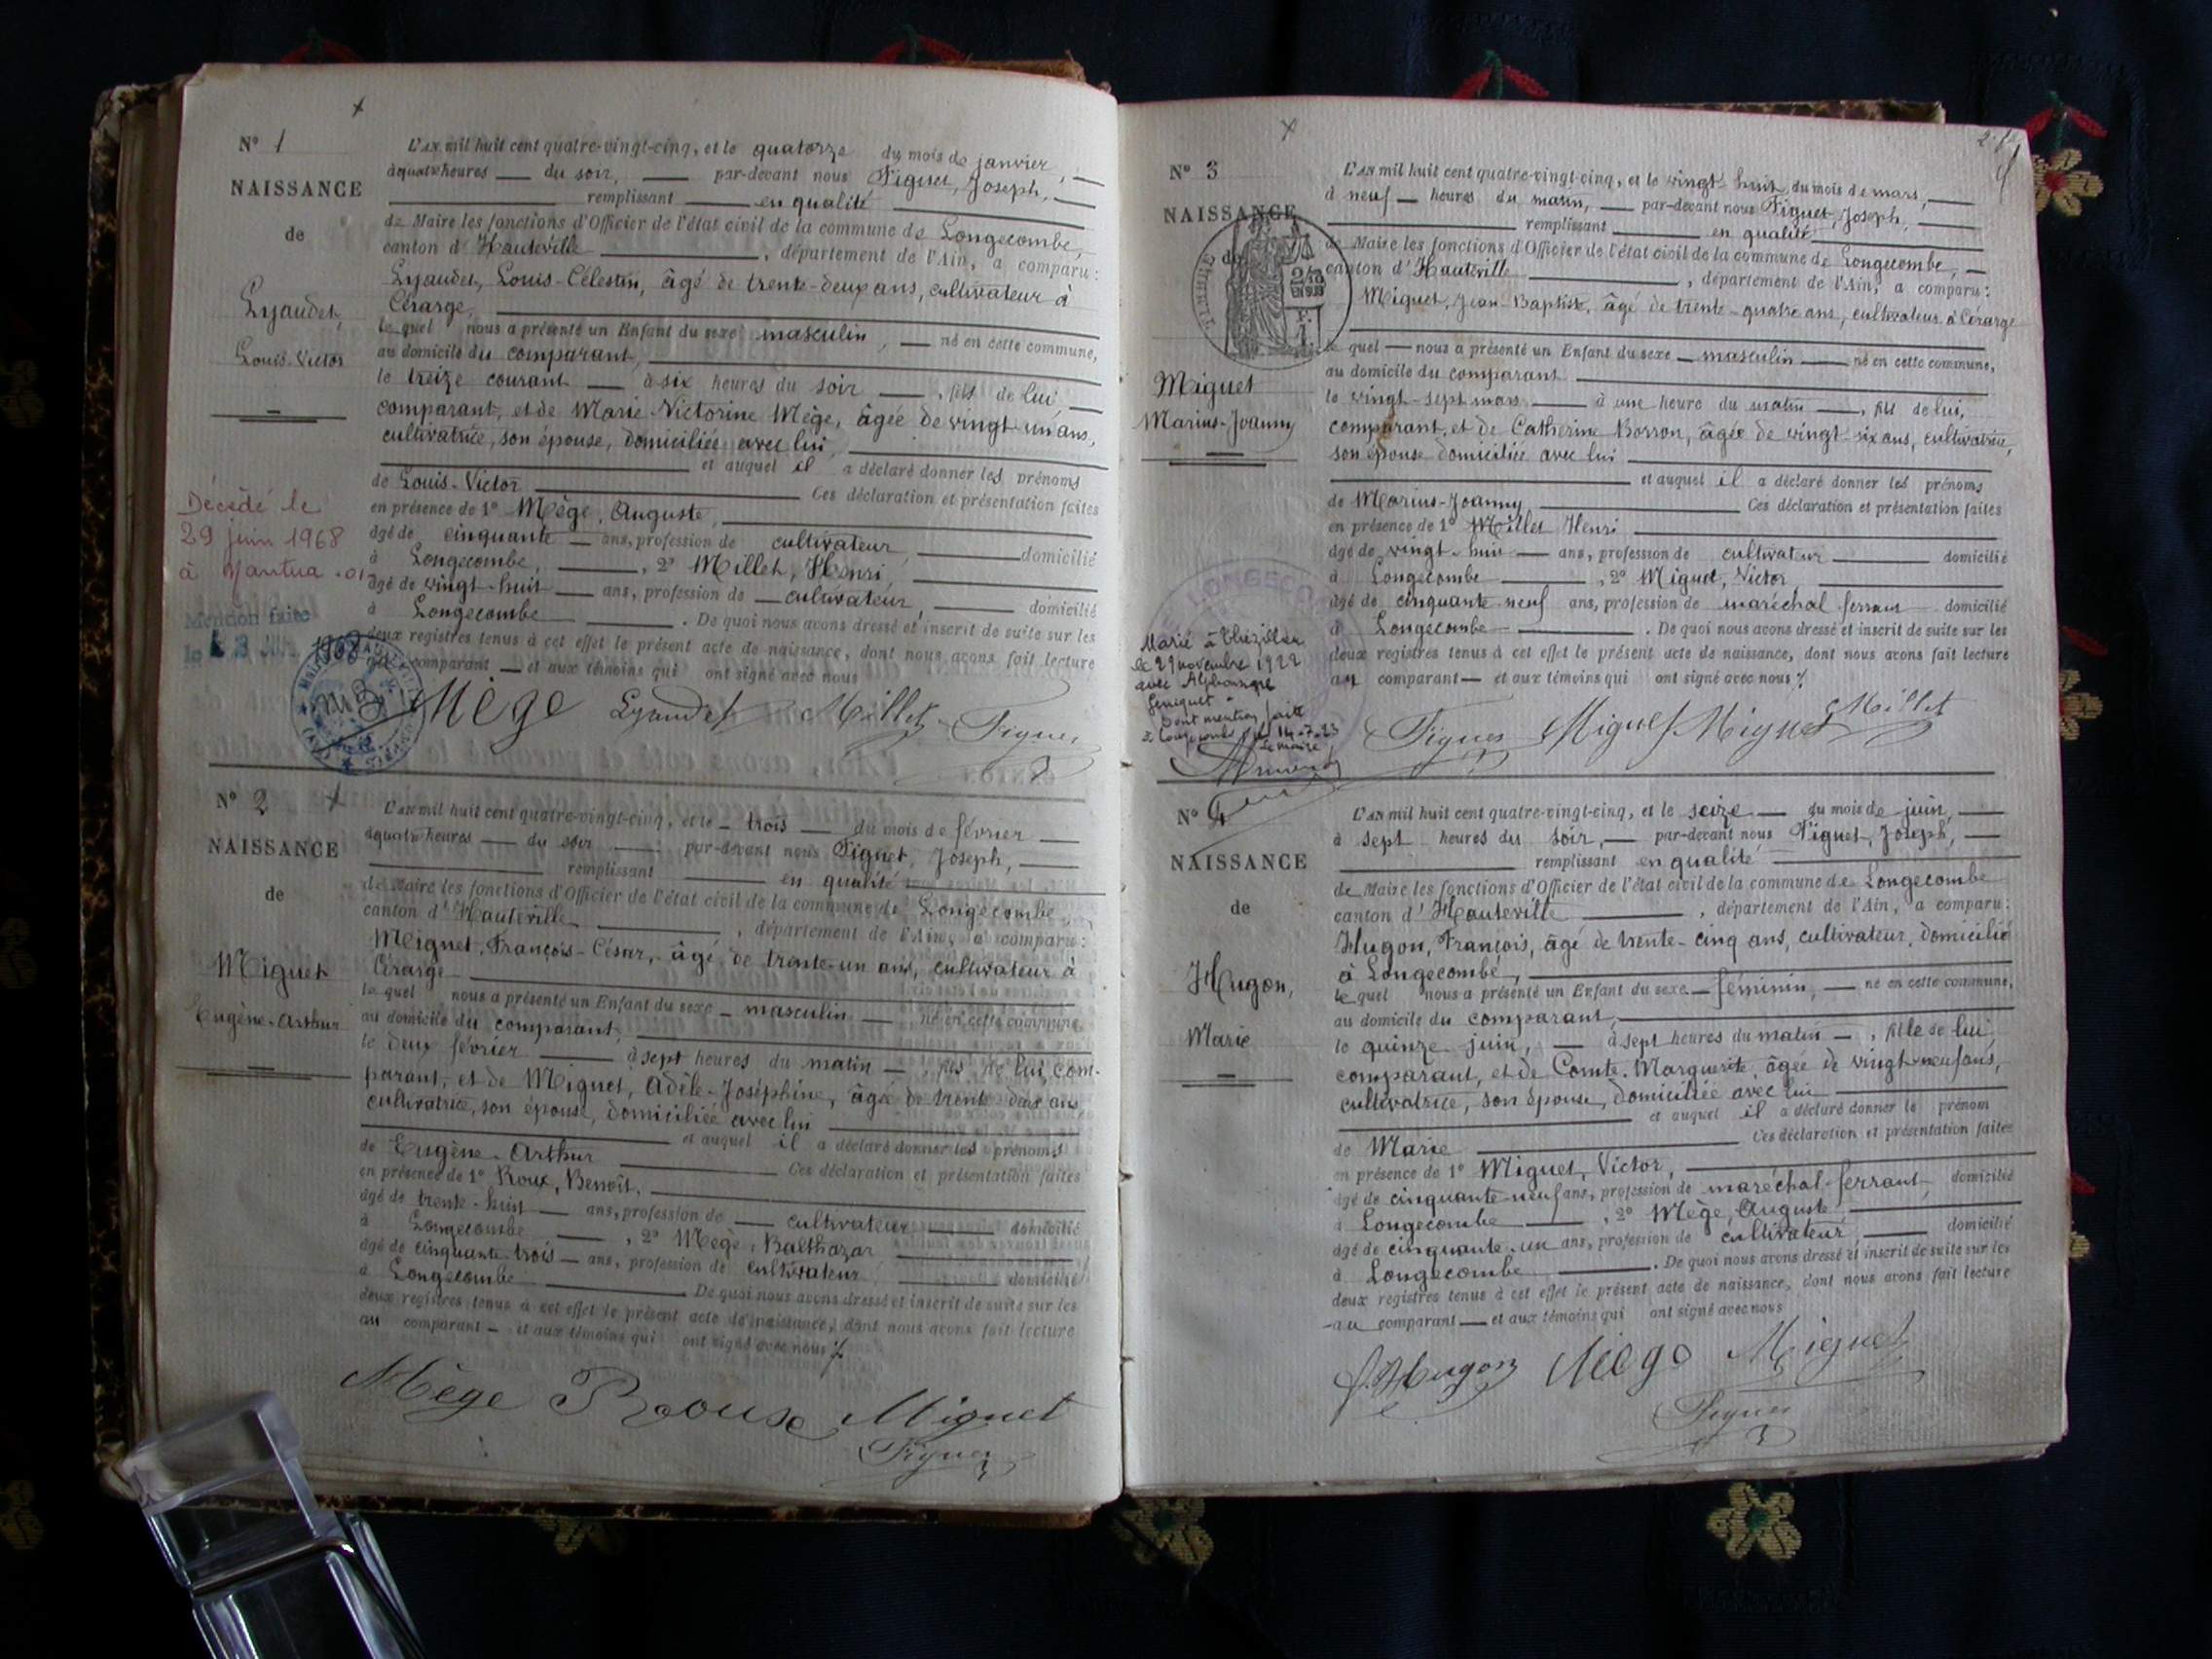 N° 1
NAISSANCE
de
Lyaudet,
Louis-Victor
Décédé le
29 juin 1968
à Nantua
Mention faite
le 3 1968
L'AN mil huit cent quatre-vingt-cinq, et le quatorze du mois de janvier,
à quatre heures du soir, par-devant nous Figuet, Joseph,
remplissant en qualité
de Maire les fonctions d'Officier de l'état civil de la commune de Longecombe,
canton d'Hauteville, département de l'Ain, a comparu:
Lyaudet, Louis-Célestin, âgé de trente-deux ans, cultivateur à
Cérarge,
lequel nous a présenté un Enfant du sexe masculin, né en cette commune,
au domicile du comparant,
le treize courant à six heures du soir, fils de lui
comparant, et de Marie-Victorine Mège, âgée de vingt-un ans,
cultivatrice, son épouse, domiciliée avec lui,
et auquel il a déclaré donner les prénoms
de Louis-Victor Ces déclaration et présentation faites
en présence de 1° Mège, Auguste,
âgé de cinquante ans, profession de cultivateur, domicilié
à Longecombe, , 2° Millet, Henri,
âgé de vingt-huit ans, profession de cultivateur, domicilié
à Longecombe . De quoi nous avons dressé et inscrit de suite sur les
deux registres tenus à cet effet le présent acte de naissance, dont nous avons fait lecture
au comparant et aux témoins qui ont signé avec nous
Mège Lyaudet Millet Figuet
N° 2
NAISSANCE
de
Miguet
Eugène-Arthur
L'AN mil huit cent quatre-vingt-cinq, et le trois du mois de février
à quatre heures du soir par-devant nous Figuet, Joseph,
remplissant en qualité
de Maire les fonctions d'Officier de l'état civil de la commune de Longecombe,
canton d'Hauteville, département de l'Ain, a comparu:
Miguet, François-César, âgé de trente-un ans, cultivateur à
Cérarge
lequel nous a présenté un Enfant du sexe masculin né en cette commune,
au domicile du comparant,
le deux février à sept heures du matin, fils de lui com-
parant, et de Miguet, Adèle-Joséphine, âgée de trente deux ans
cultivatrice, son épouse, domiciliée avec lui
et auquel il a déclaré donner les prénoms
de Eugène-Arthur Ces déclaration et présentation faites
en présence de 1° Roux, Benoît,
âgé de trente-huit ans, profession de cultivateur domicilié
à Longecombe, 2° Mège, Balthazar
âgé de cinquante-trois ans, profession de cultivateur domicilié
à Longecombe . De quoi nous avons dressé et inscrit de suite sur les
deux registres tenus à cet effet le présent acte de naissance, dont nous avons fait lecture
au comparant et aux témoins qui ont signé avec nous
Mège Roux Miguet
Figuet
N° 3
NAISSANCE
de
TIMBRE
Miguet
Marius-Joanny
LONGECOMBE
Marié à Thézillieu
le 29 novembre 1922
avec Alphonsine
dont mention faite
à Longecombe le 14-7-23
Le maire
L'AN mil huit cent quatre-vingt-cinq, et le vingt huit du mois de mars,
à neuf heures du matin, par-devant nous Figuet, Joseph,
remplissant en qualité
de Maire les fonctions d'Officier de l'état civil de la commune de Longecombe,
canton d'Hauteville, département de l'Ain, a comparu:
Miguet, Jean-Baptiste, âgé de trente-quatre ans, cultivateur à Cérarge
lequel nous a présenté un Enfant du sexe masculin né en cette commune,
au domicile du comparant
le vingt-sept mars à une heure du matin, fils de lui,
comparant, et de Catherine Borron, âgée de vingt six ans, cultivatrice,
son épouse domiciliée avec lui
et auquel il a déclaré donner les prénoms
de Marius-Joanny Ces déclaration et présentation faites
en présence de 1° Millet Henri
âgé de vingt-huit ans, profession de cultivateur domicilié
à Longecombe, 2° Miguet, Victor
âgé de cinquante-neuf ans, profession de maréchal ferrant domicilié
à Longecombe . De quoi nous avons dressé et inscrit de suite sur les
deux registres tenus à cet effet le présent acte de naissance, dont nous avons fait lecture
au comparant et aux témoins qui ont signé avec nous
Figuet Miguet Miguet Millet
N° 4
NAISSANCE
de
Hugon,
Marie
L'AN mil huit cent quatre-vingt-cinq, et le seize du mois de juin,
à sept heures du soir, par-devant nous Figuet, Joseph,
remplissant en qualité
de Maire les fonctions d'Officier de l'état civil de la commune de Longecombe
canton d'Hauteville, département de l'Ain, a comparu:
Hugon, François, âgé de trente-cinq ans, cultivateur, domicilié
à Longecombe,
lequel nous a présenté un Enfant du sexe féminin, né en cette commune,
au domicile du comparant,
le quinze juin, à sept heures du matin, fille de lui
comparant, et de Comte, Marguerite, âgée de vingt-neuf ans,
cultivatrice, son épouse, domiciliée avec lui
et auquel il a déclaré donner le prénom
de Marie Ces déclaration et présentation faites
en présence de 1° Miguet, Victor,
âgé de cinquante-neuf ans, profession de maréchal-ferrant domicilié
à Longecombe, 2° Mège, Auguste
âgé de cinquante-un ans, profession de cultivateur, domicilié
à Longecombe . De quoi nous avons dressé et inscrit de suite sur les
deux registres tenus à cet effet le présent acte de naissance, dont nous avons fait lecture
au comparant et aux témoins qui ont signé avec nous
f. Hugon Mège Miguet
Figuet